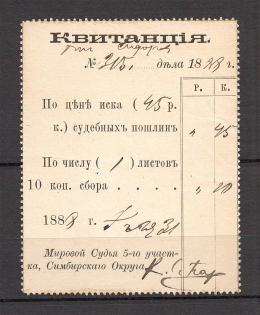 КВИТАНЦІЯ.
№ 205. дѣла 1888 г.
Р. К.
По цѣнѣ иска (45 р.
к.) судебныхъ пошлинъ „ 45
По числу (1) листовъ
10 коп. сбора . . . . „ 10
1888 г. 31
Мировой Судья 5-го участ-
ка, Симбирскаго Округа